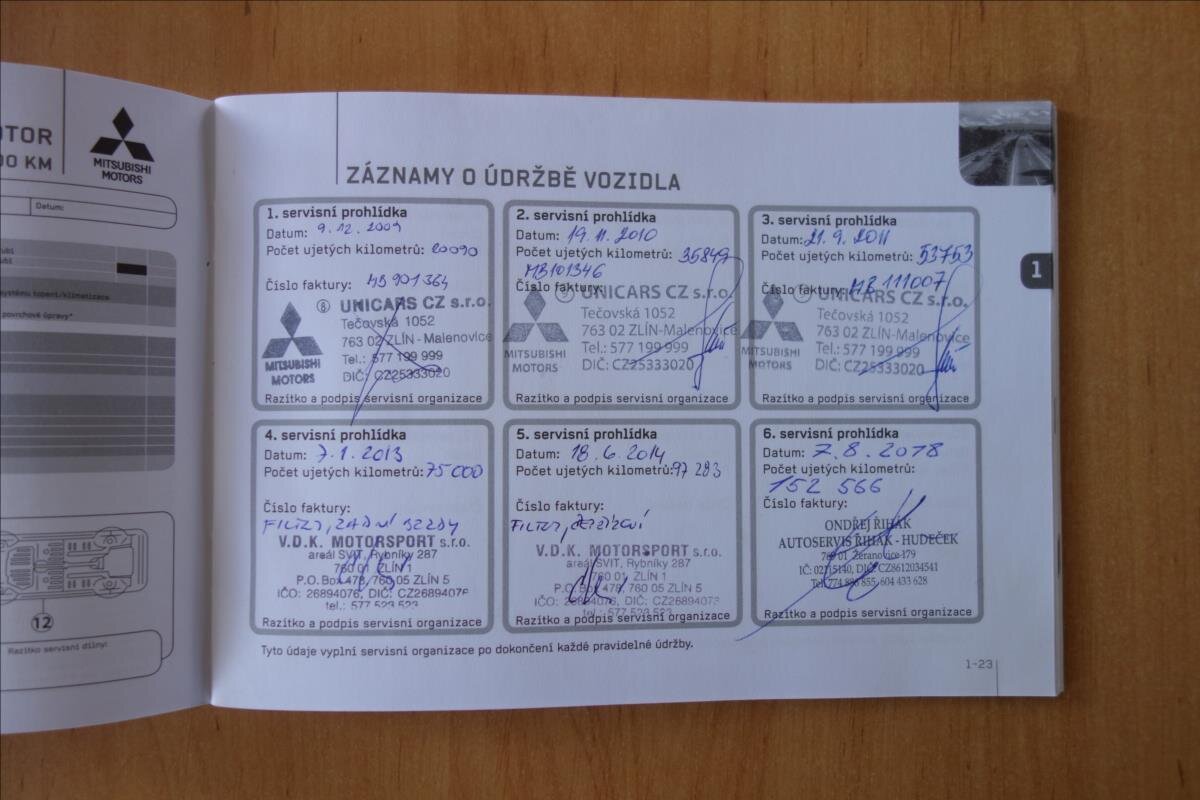 OTOR
00 KM
MITSUBISHI
MOTORS
Datum:
systému topení/klimatizace
povrchové úpravy*
12
Razítko servisní dílny:
ZÁZNAMY O ÚDRŽBĚ VOZIDLA
1
1. servisní prohlídka
Datum: 9.12.2009
Počet ujetých kilometrů: 20090
Číslo faktury: MB901364
8 UNICARS CZ s.r.o.
Tečovská 1052
763 02 ZLÍN-Malenovice
Tel.: 577 199 999
DIČ: CZ25333020
MITSUBISHI
MOTORS
Razítko a podpis servisní organizace
2. servisní prohlídka
Datum: 19.11.2010
Počet ujetých kilometrů: 35849
MB101346
Číslo faktury:
9 UNICARS CZ s.r.o.
Tečovská 1052
763 02 ZLÍN-Malenovice
Tel.: 577 199 999
DIČ: CZ25333020
MITSUBISHI
MOTORS
Razítko a podpis servisní organizace
3. servisní prohlídka
Datum: 21.9.2011
Počet ujetých kilometrů: 53753
Číslo faktury: MB111007
9 UNICARS CZ s.r.o.
Tečovská 1052
763 02 ZLÍN-Malenovice
Tel.: 577 199 999
DIČ: CZ25333020
MITSUBISHI
MOTORS
Razítko a podpis servisní organizace
4. servisní prohlídka
Datum: 7.1.2013
Počet ujetých kilometrů: 75000
Číslo faktury:
FILTRY, ZADNÍ BRZDY
V.D.K. MOTORSPORT s.r.o.
areál SVIT, Rybníky 287
760 01 ZLÍN 1
P.O.Box 478, 760 05 ZLÍN 5
IČO: 26894076, DIČ: CZ26894076
tel.: 577 523 523
Razítko a podpis servisní organizace
5. servisní prohlídka
Datum: 18.6.2014
Počet ujetých kilometrů: 97283
Číslo faktury:
FILTRY,
V.D.K. MOTORSPORT s.r.o.
areál SVIT, Rybníky 287
760 01 ZLÍN 1
P.O.Box 478, 760 05 ZLÍN 5
IČO: 26894076, DIČ: CZ26894076
tel.: 577 523 523
Razítko a podpis servisní organizace
6. servisní prohlídka
Datum: 7.8.2018
Počet ujetých kilometrů:
152 566
Číslo faktury:
ONDŘEJ ŘIHÁK
AUTOSERVIS ŘIHÁK - HUDEČEK
769 01 Žeranovice 179
IČ: 02715140, DIČ: CZ8612034541
Tel. 774 886 855, 604 433 628
Razítko a podpis servisní organizace
Tyto údaje vyplní servisní organizace po dokončení každé pravidelné údržby.
1-23